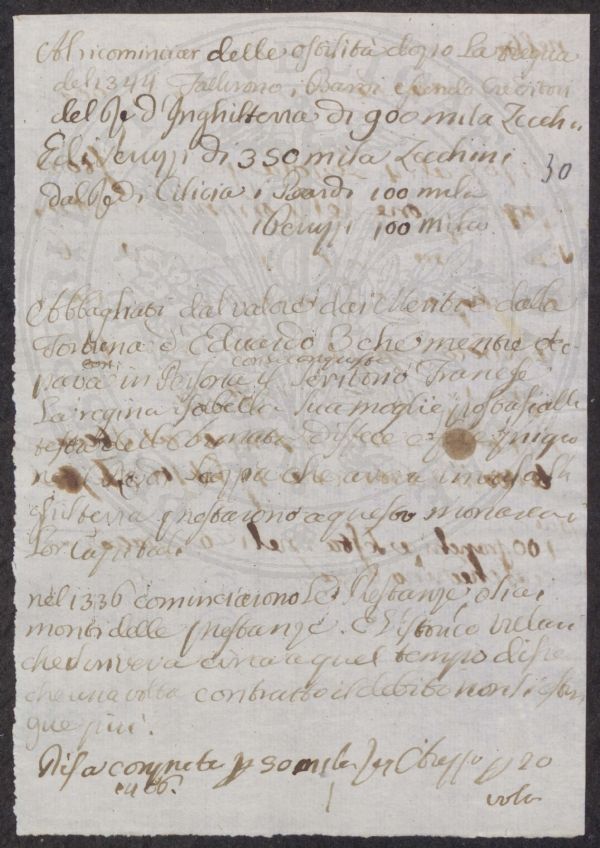 Al ricominciar delle ostilità dopo La tregua
del 1344 Fallirono i Bardi essendo Creditori
del Re d'Inghilterra di 900 mila Zecchi
E di Peruzzi di 350 mila Zecchini
30
dal Re di Cilicia i Bardi 100 mila
i Peruzzi 100 mila
Abbagliati dal valore dai Meriti e dalla
Fortuna d'Eduardo 3 che mentre
pava in Persona il Territorio Francese
con conquiste
La regina Isabella sua moglie postasi alla
testa dell'Armata disfece
nel che aveva
prestarono a questo monarca i
Lor Capitali
nel 1336 cominciarono Le Prestanze o sia i
monti delle prestanze. E l'istorico
che viveva circa a quel tempo disse
che una volta contratto il debito non si estin
gue più.
Pisa comprata p 50 mila p 20
volte